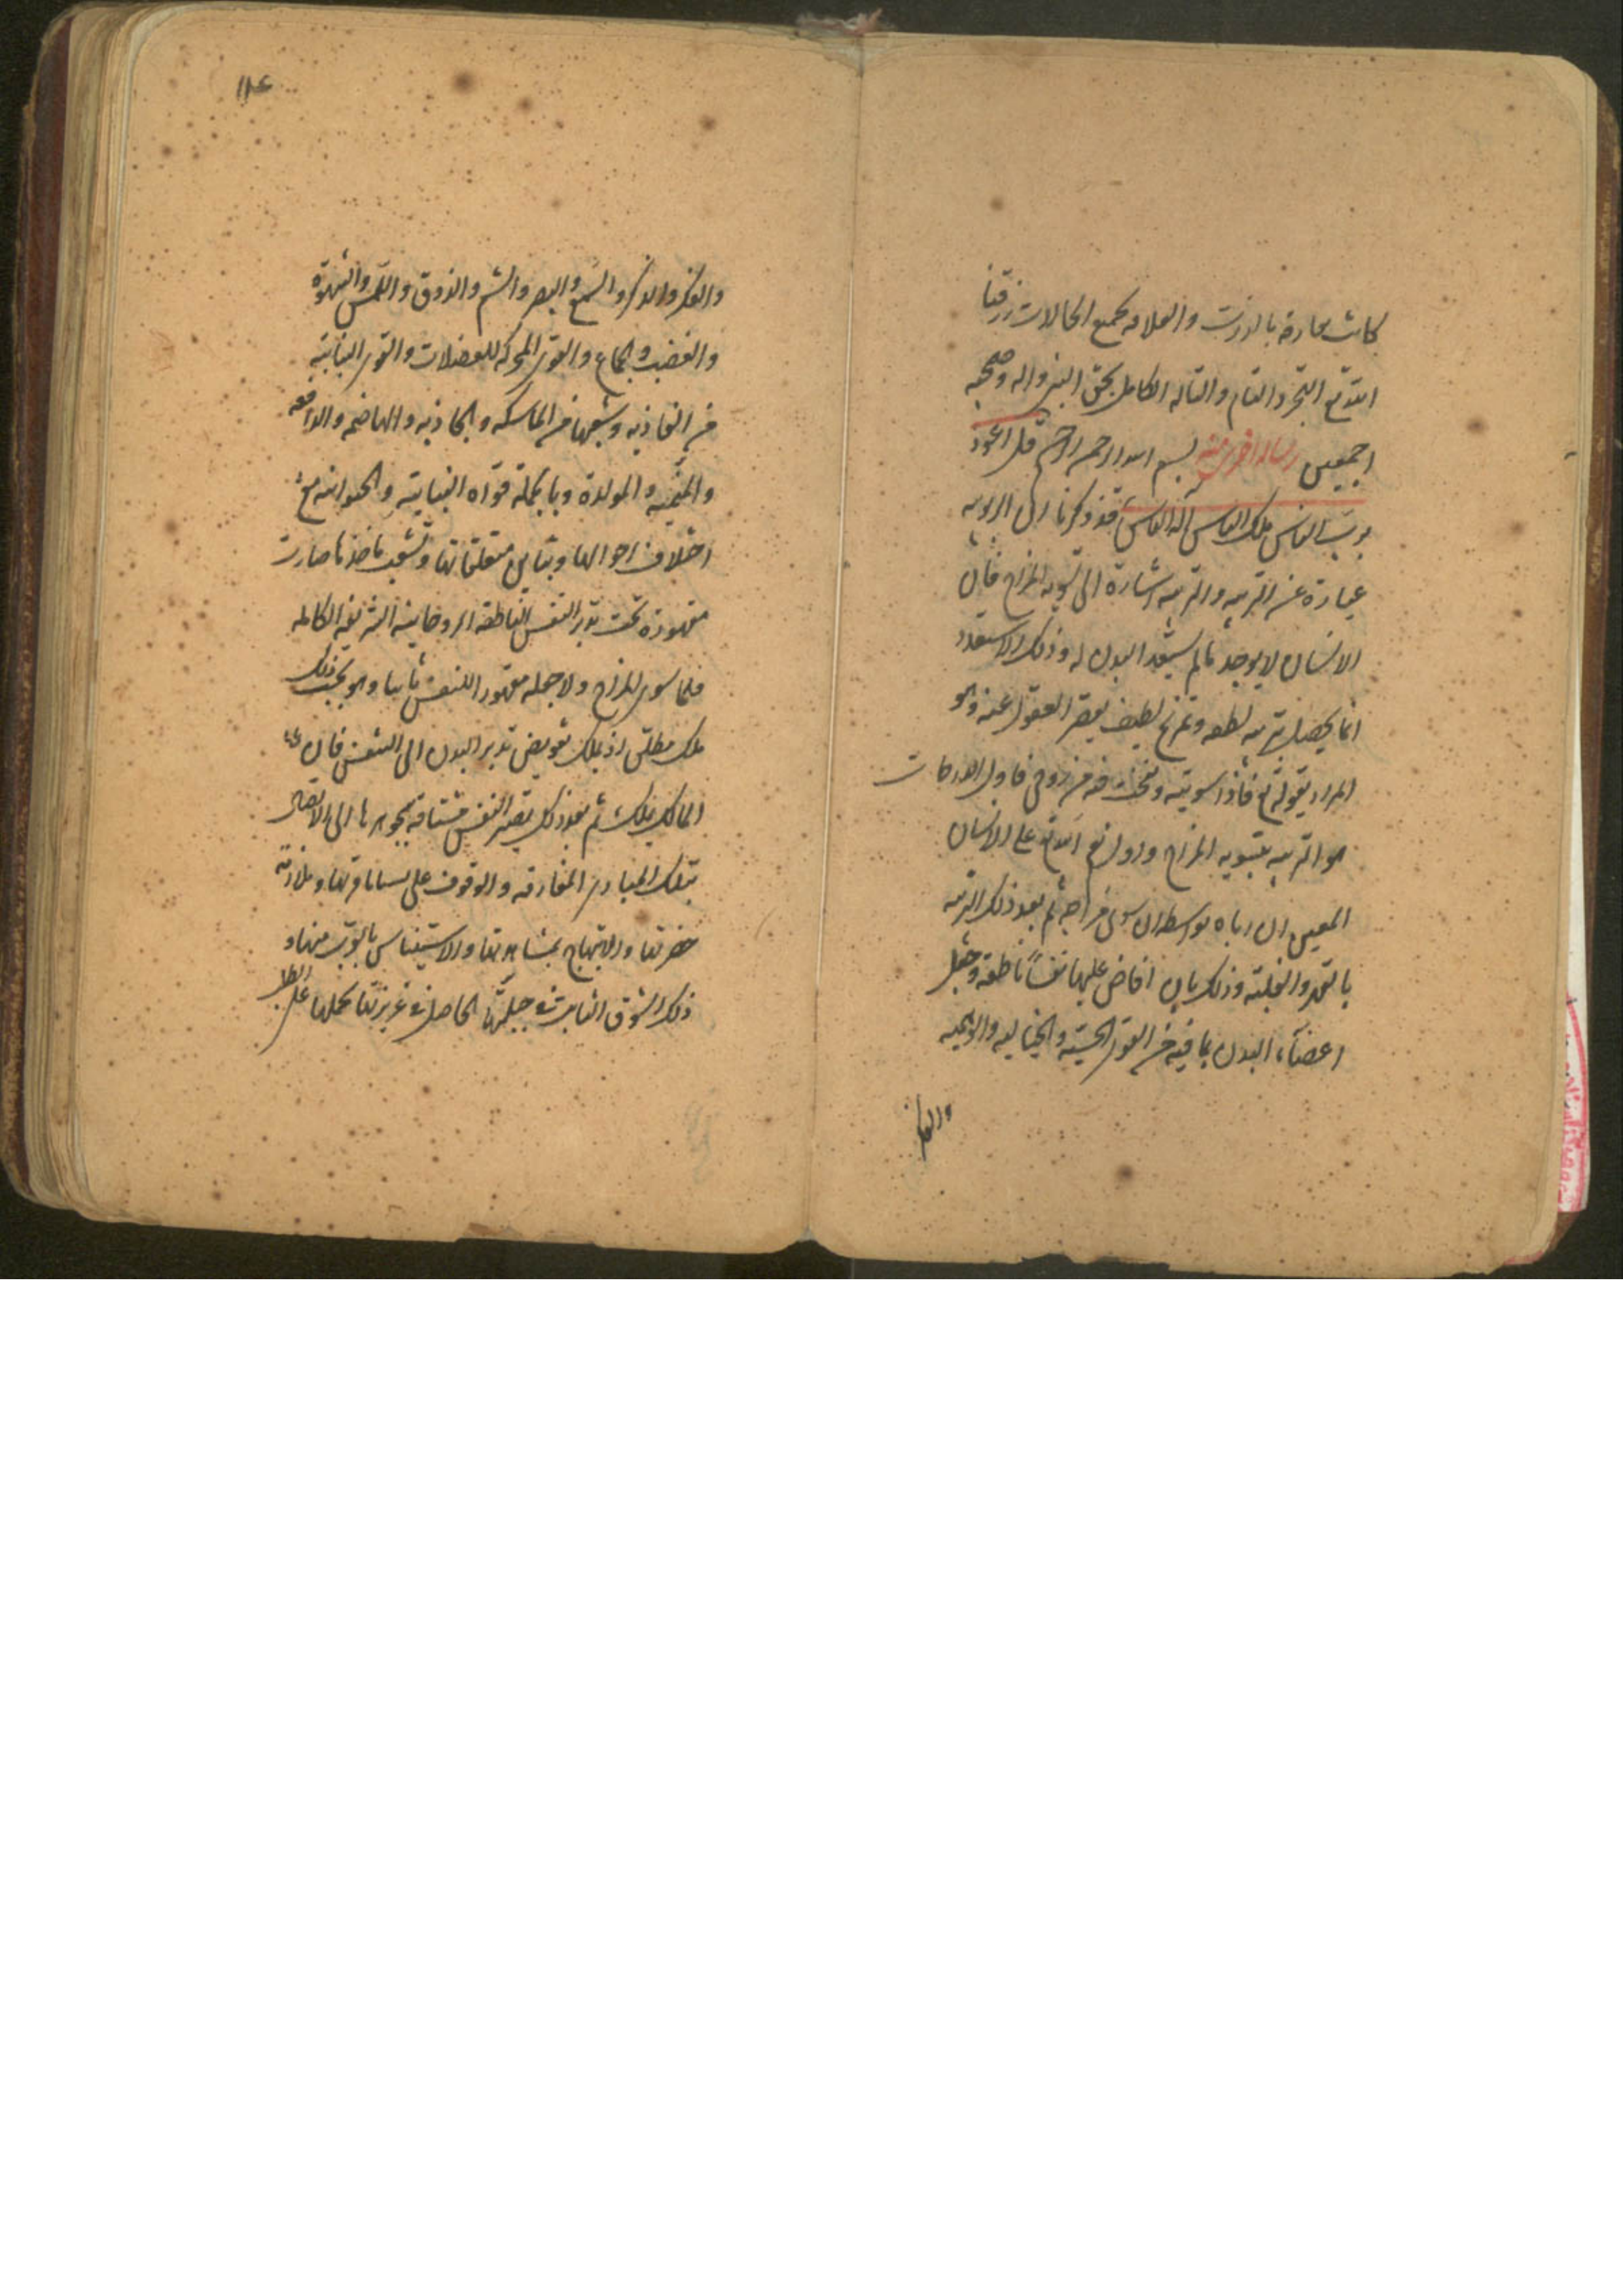 كانت مفارقة بالذات والعلاقة بجميع الحالات رزقنا
الله تع التجرد التام والتاله الكامل بحق النبي واله وصحبه
اجمعين رساله اخرى منه بسم الله الرحمن الرحيم قل اعوذ
برب الناس ملك الناس اله الناس قد ذكرنا ان الربوبيه
عبارة عن التربيه والتربيه اشارة الى تسويه المزاج فان
الانسان لا يوجد ما لم يستعد البدن له وذلك الاستعداد
انما يحصل بتربيه لطيفه وتمزيج لطيف يقصر العقول عنه وهو
المراد بقوله تع فاذا سويته ونفخت فيه من روحي فاول الدرجات
هو التربيه بتسويه المزاج واول نعم الله تع على الانسان
المعين ان رباه بواسطه ان سوى مزاجه ثم بعد ذلك التربيه
بالقهر والغلبه وذلك بان افاض عليها نفساً ناطقه وجعل
اعضآء البدن بما فيه من القوى الحسيه والخياليه والوهميه
والفكر
١١٤
والفكر والذكر والسمع والبصر والشم والذوق واللمس والشهوة
والغضب والجماع والقوى المحركه للعضلات والقوى النباتيه
من الغاذيه وشعبها من الماسكه والجاذبه والهاضمه والدافعه
والمنميه والمولدة وبالجملة قواه النباتيه والحيوانيه مع
اختلاف احوالها وتباين متعلقاتها وتشعب ماخذها صارت
مقهورة تحت تدبير النفس الناطقه الروحانيه الشريفه الكامله
فلما سوى المزاج ولا جعله مقهور النفس ثانيا وهو بحسب ذلك
ملك مطلق اذ يملك تفويض تدبير البدن الى النفس فان
المالك يملك ثم بعد ذلك تصير النفس مشتاقه بجوهرها الى الاتصال
بتلك المبادى المفارقه والوقوف على بساط قربها وملازمه
حضرتها والابتهاج بمشاهدتها والاستيناس بالقرب منها و
ذلك الشوق الثابت في جبلتها الحاصل في غريزتها يحملها على الطلب